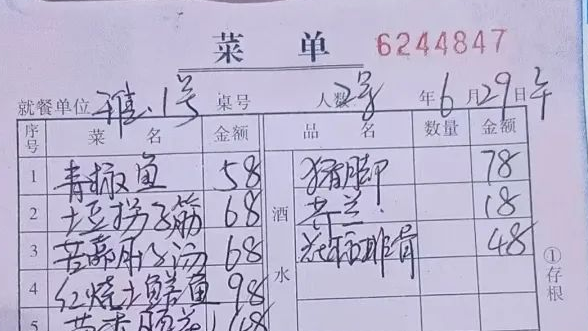 菜 单 6244847
就餐单位 雅.1号 桌号 人数 2号 年 6 月 29 日 午
序号 菜 名 金额 品 名 数量 金额
1 青椒鱼 58 猪脚 78
2 土豆拐子筋 68 酒 18
3 68 水 排骨 48
4 红烧土鳝鱼 98
5
①存根